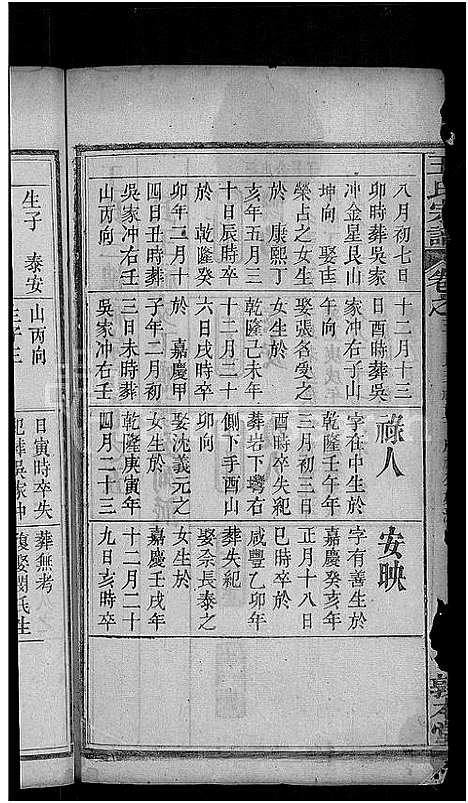 王氏宗譜
卷之
敦本堂
八月初七日
卯時葬吳家
冲金星艮山
坤向 娶芭
榮占之女生
於 康熙丁
亥年五月三
十日辰時卒
於 乾隆癸
卯年二月十
四日丑時葬
吳家冲右壬
山丙向
十二月十三
日酉時葬吳
家冲右子山
娶張名受之
女生於
乾隆己未年
十二月二十
六日戌時卒
於 嘉慶甲
子年二月初
三日未時葬
吳家冲右壬
祿人
字在中生於
乾隆壬午年
三月初三日
酉時卒失紀
葬岩下塆右
側下手酉山
卯向
娶沈義元之
女生於
乾隆庚寅年
四月二十三
安映
字有善生於
嘉慶癸亥年
正月十八日
巳時卒於
咸豐乙卯年
葬失紀
娶余長泰之
女生於
嘉慶壬戌年
十二月二十
九日亥時卒
生子 泰安
山丙向
生子三
日寅時卒失
紀葬吳家冲
葬無考
復娶閔氏生